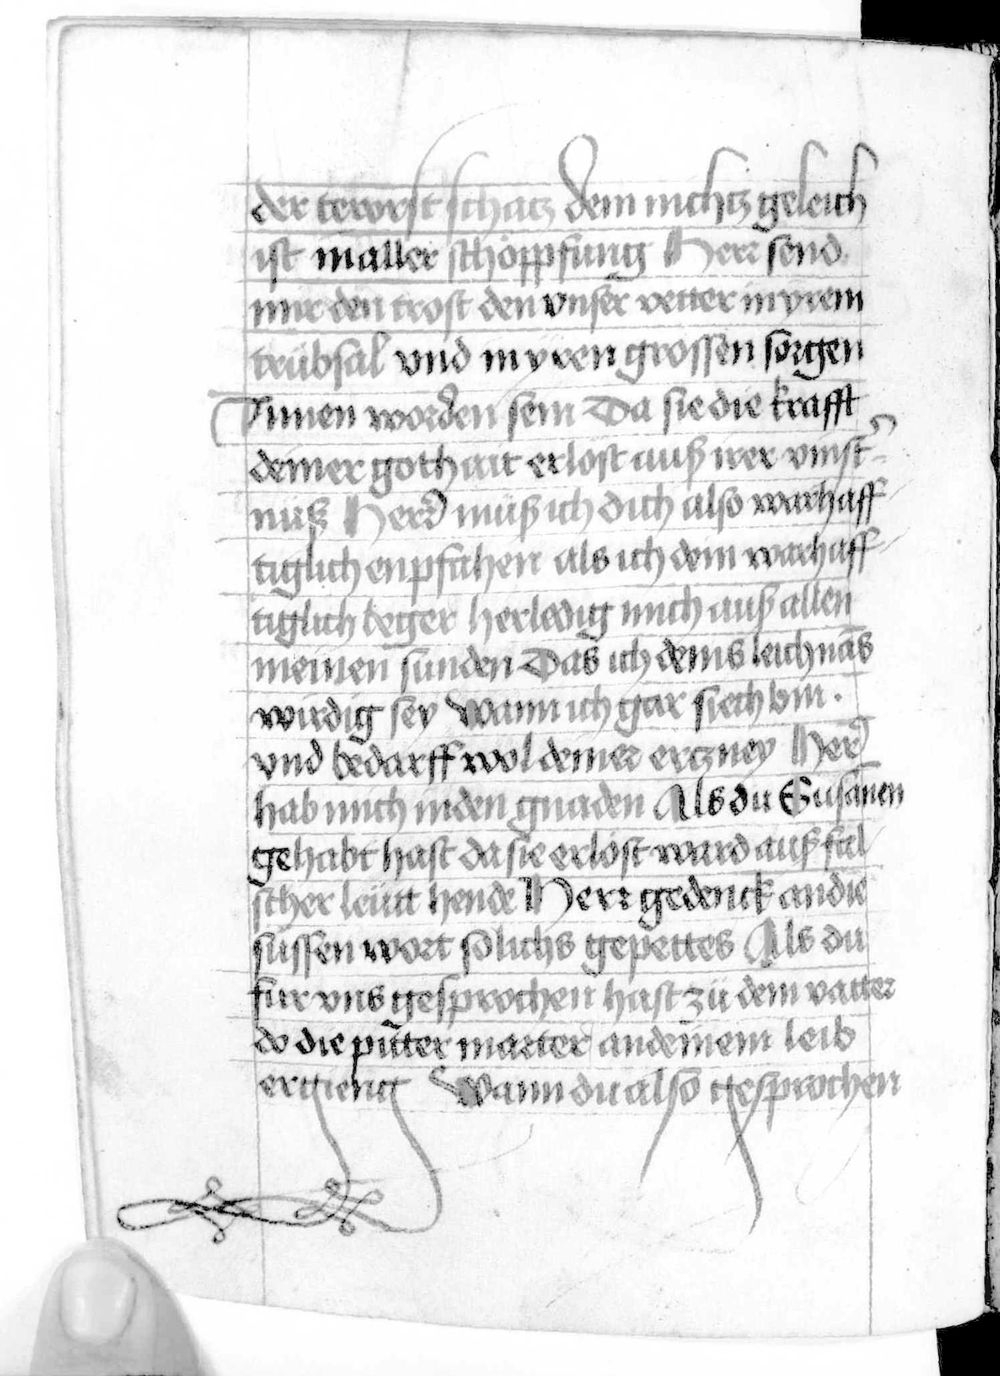 der teworst schatz dem nichtz geleich
ist in aller schöppfung Herr send
mir den trost den vnser vetter in yrem
trübsal vnd in yren grossen sorgen
Innen worden sein Da sie die krafft
deiner gothait erlost auß irer vinst
nuß Herr müß ich dich also warhaff
tiglich enpfahen als ich dein warhaff
tiglich beger herledig mich auß allen
meinen sunden Das ich deins leichnās
wirdig sey Wann ich gar siech bin .
vnd bedarff wol deiner ertzney Herr
hab mich in den gnaden Als du Susanen
gehabt hast da sie erlöst ward auß fal
scher leütt hende Herr gedenck an die
süssen wort solichs gepettes Als du
fur vns gesprochen hast zü dem vatter
do die pitter marter an deinem leib
ergieng Wann du also gesprochen